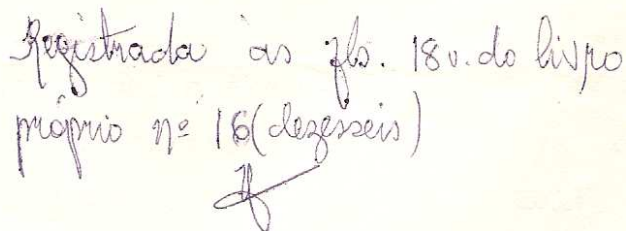 Registrada às fls. 18v. do livro
próprio nº 16 (dezesseis)